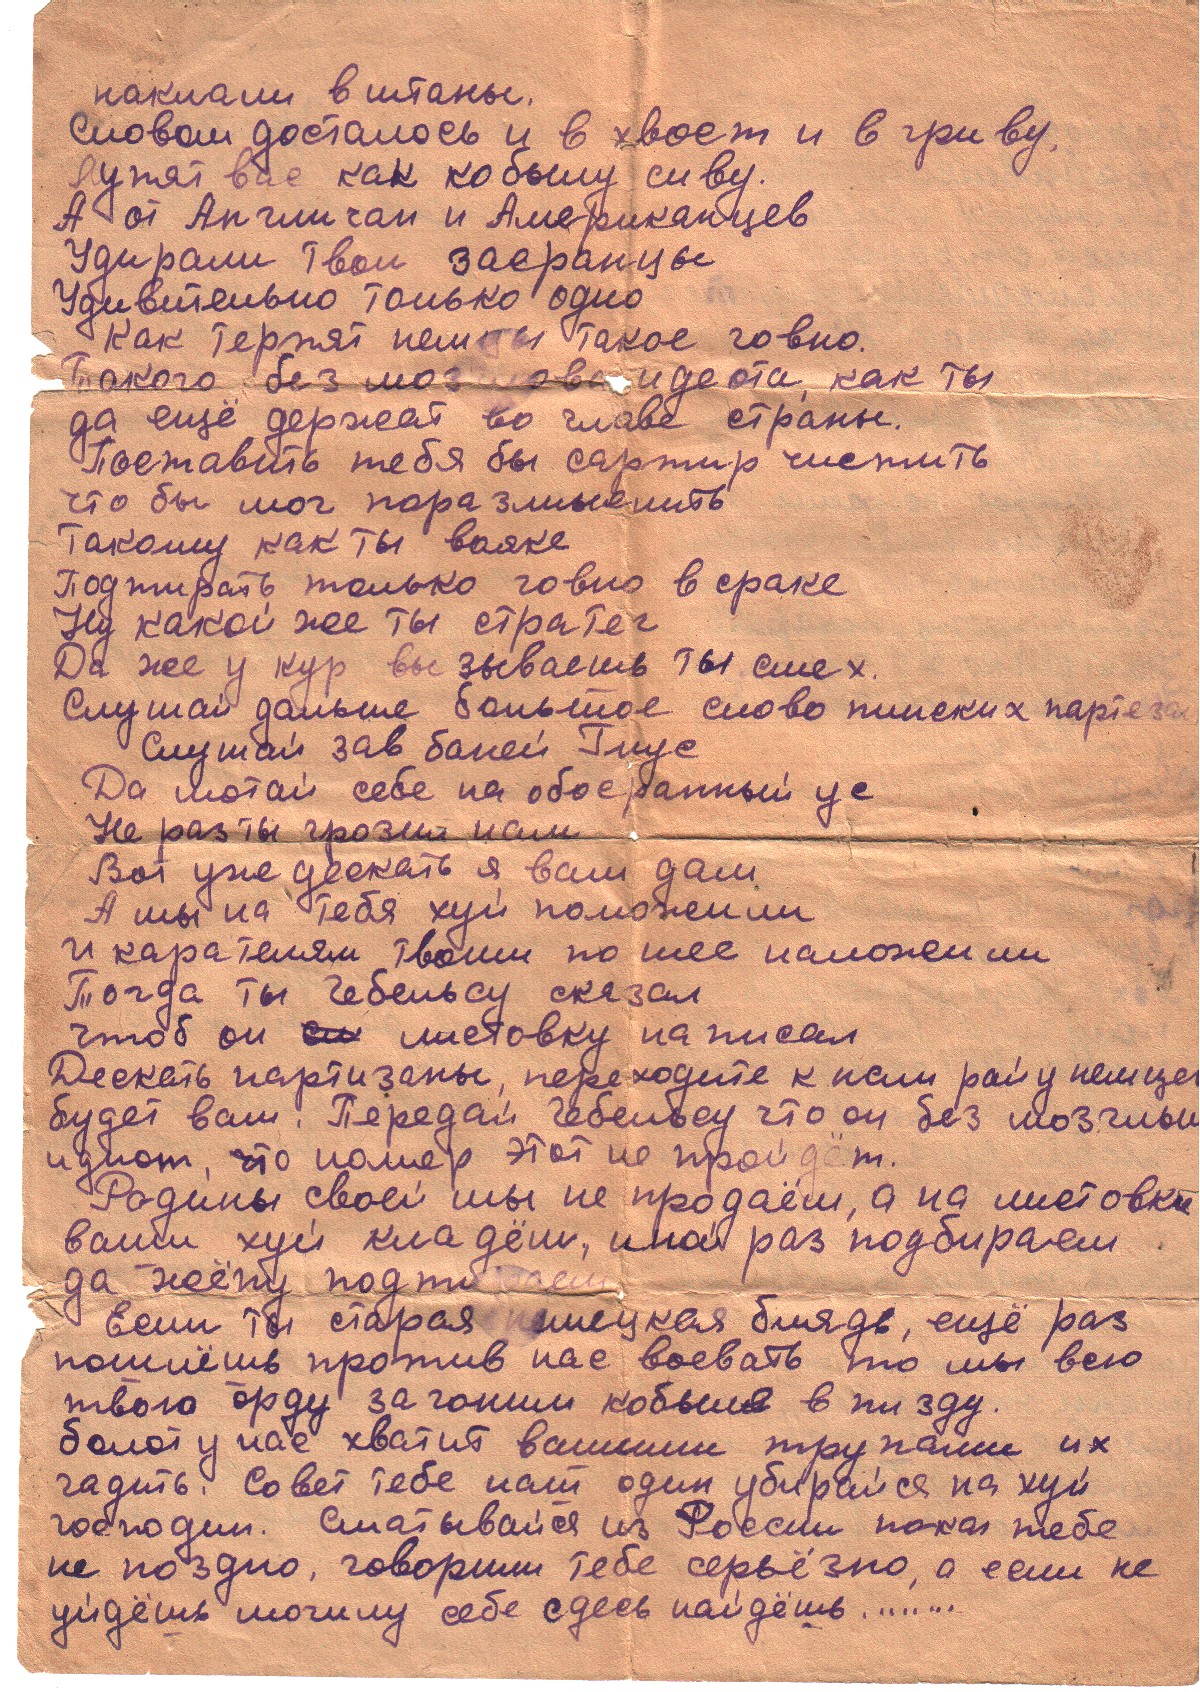 наклали в штаны.
Словом досталось и в хвост и в гриву,
Лупят вас как кобылу сиву.
А от Англичан и Американцев
Удирали твои засранцы
Удивительно только одно
Как терпят немцы такое говно.
Такого без мозглово идеота, как ты
да ещё держат во главе страны.
Поставить тебя бы сартир чистить
что бы мог поразмыслить
Такому как ты вояке
Подтирать только говно в сраке
Ну какой же ты стратег
Да же у кур вызываешь ты смех.
Слушай дальше большое слово пинских партеза
Слушай зав баней Гнус
Да мотай себе на обосранный ус
Не раз ты грозил нам
Вот уже дескать я вам дам
А мы на тебя хуй положили
и карателям твоим по шее наложили
Тогда ты Гебельсу сказал
чтоб он листовку написал
Дескать партизаны, переходите к нам рай у немцев
будет вам. Передай Гебельсу что он без мозглый
идиот, что номер этот не пройдёт.
Родины своей мы не продаём, а на листовки
ваши хуй кладём, иной раз подбираем
да жёпу подтираем
Если ты старая немецкая блядь, ещё раз
пошлёшь против нас воевать то мы всю
твою орду загоним кобыле в пизду.
болот у нас хватит вашими трупами их
гадить. Совет тебе наш один убирайся на хуй
господин. Сматывайся из России пока тебе
не поздно, говорим тебе серьёзно, а если не
уйдёшь могилу себе сдесь найдёшь........